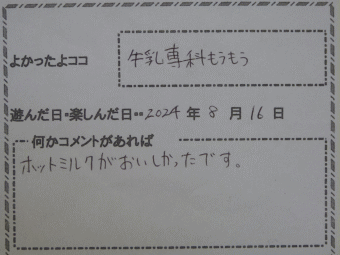 よかったよココ 牛乳専科もうもう
遊んだ日・楽しんだ日・・2024年8月16日
何かコメントがあれば
ホットミルクがおいしかったです。